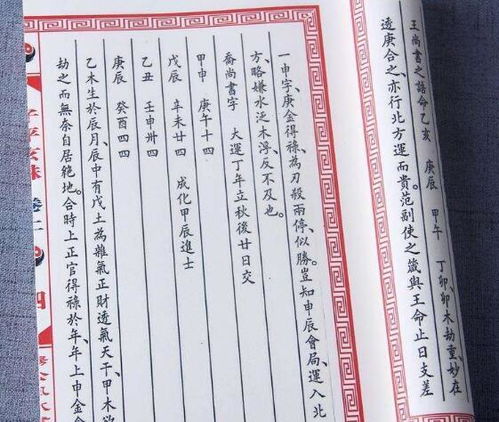 王尚書之誥命乙亥 庚辰 甲午 丁卯、卯木劫重、妙在
透庚合之、亦行北方運而貴。范副使之箴與王命止日支差
一申字、庚金得祿、為刃殺兩停、似勝。豈知申辰會局、運入北
方、略嫌水泛木浮、反不及也。
喬尚書宇 大運丁年立秋後廿日交
甲申 庚午十四
戊辰 辛未廿四 成化甲辰進士
乙丑 壬申卅四
庚辰 癸酉四四
乙木生於辰月、辰中有戊土為雜氣正財透氣天干、甲木欲
劫之而無奈自居絶地。合時上正官得祿於年、年上申金會
子平玄珠 卷一
四